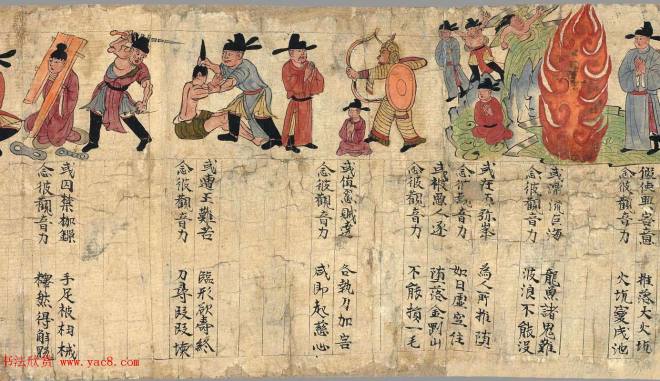 假使興害意 推落大火坑
念彼觀音力 火坑變成池
或漂流巨海 龍魚諸鬼難
念彼觀音力 波浪不能沒
或在須弥峯 為人所推堕
念彼觀音力 如日虛空住
或被惡人逐 堕落金剛山
念彼觀音力 不能損一毛
或值怨賊遶 各執刀加害
念彼觀音力 咸即起慈心
或遭王難苦 臨形欲壽終
念彼觀音力 刀尋段段壞
或囚禁枷鎖 手足被杻械
念彼觀音力 釋然得解脫
书法欣赏 www.yac8.com